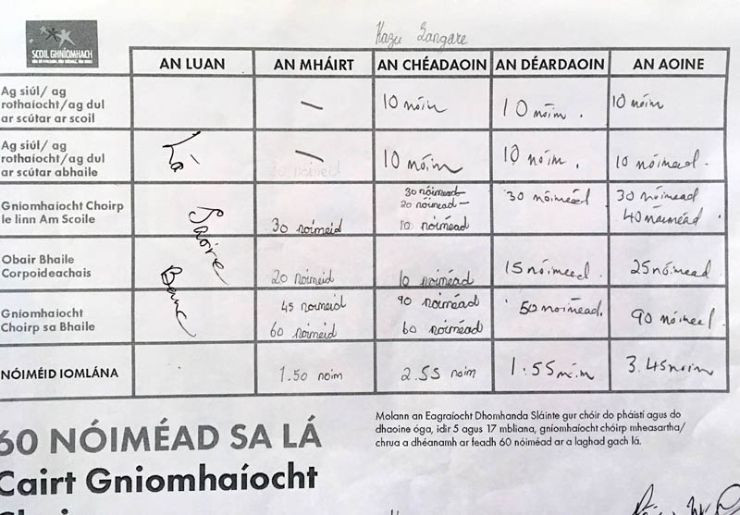 Kazu Sangare
SCOIL GHNÍOMHACH
AN LUAN AN MHÁIRT AN CHÉADAOIN AN DÉARDAOIN AN AOINE
Ag siúl/ ag
rothaíocht/ag dul
ar scútar ar scoil
— 10 nóim 10 nóim. 10 nóim
Ag siúl/ ag
rothaíocht/ag dul
ar scútar abhaile
Lá Saoire Banc
— 10 nóim 10 nóim. 10 nóimead.
Gníomhaíocht Choirp
le linn Am Scoile
30 nóimeid
30 nóiméad
20 nóiméad
10 nóiméad
30 nóiméad
30 nóiméad
40 nóiméad
Obair Bhaile
Corpoideachais
20 noimeid 10 nóiméad 15 nóimead. 25 nóiméad
Gníomhaíocht
Choirp sa Bhaile
45 noimeid
60 noimeid
90 nóiméad
60 nóiméad
50 nóiméad.
90 nóimeel.
NÓIMÉID IOMLÁNA
1.50 noim 2.55 noim 1.55 min 3.45 noim
60 NÓIMÉAD SA LÁ
Cairt Gníomhaíocht
Molann an Eagraíocht Dhomhanda Sláinte gur chóir do pháistí agus do
dhaoine óga, idir 5 agus 17 mbliana, gníomhaíocht chóirp mheasartha/
chrua a dhéanamh ar feadh 60 nóiméad ar a laghad gach lá.